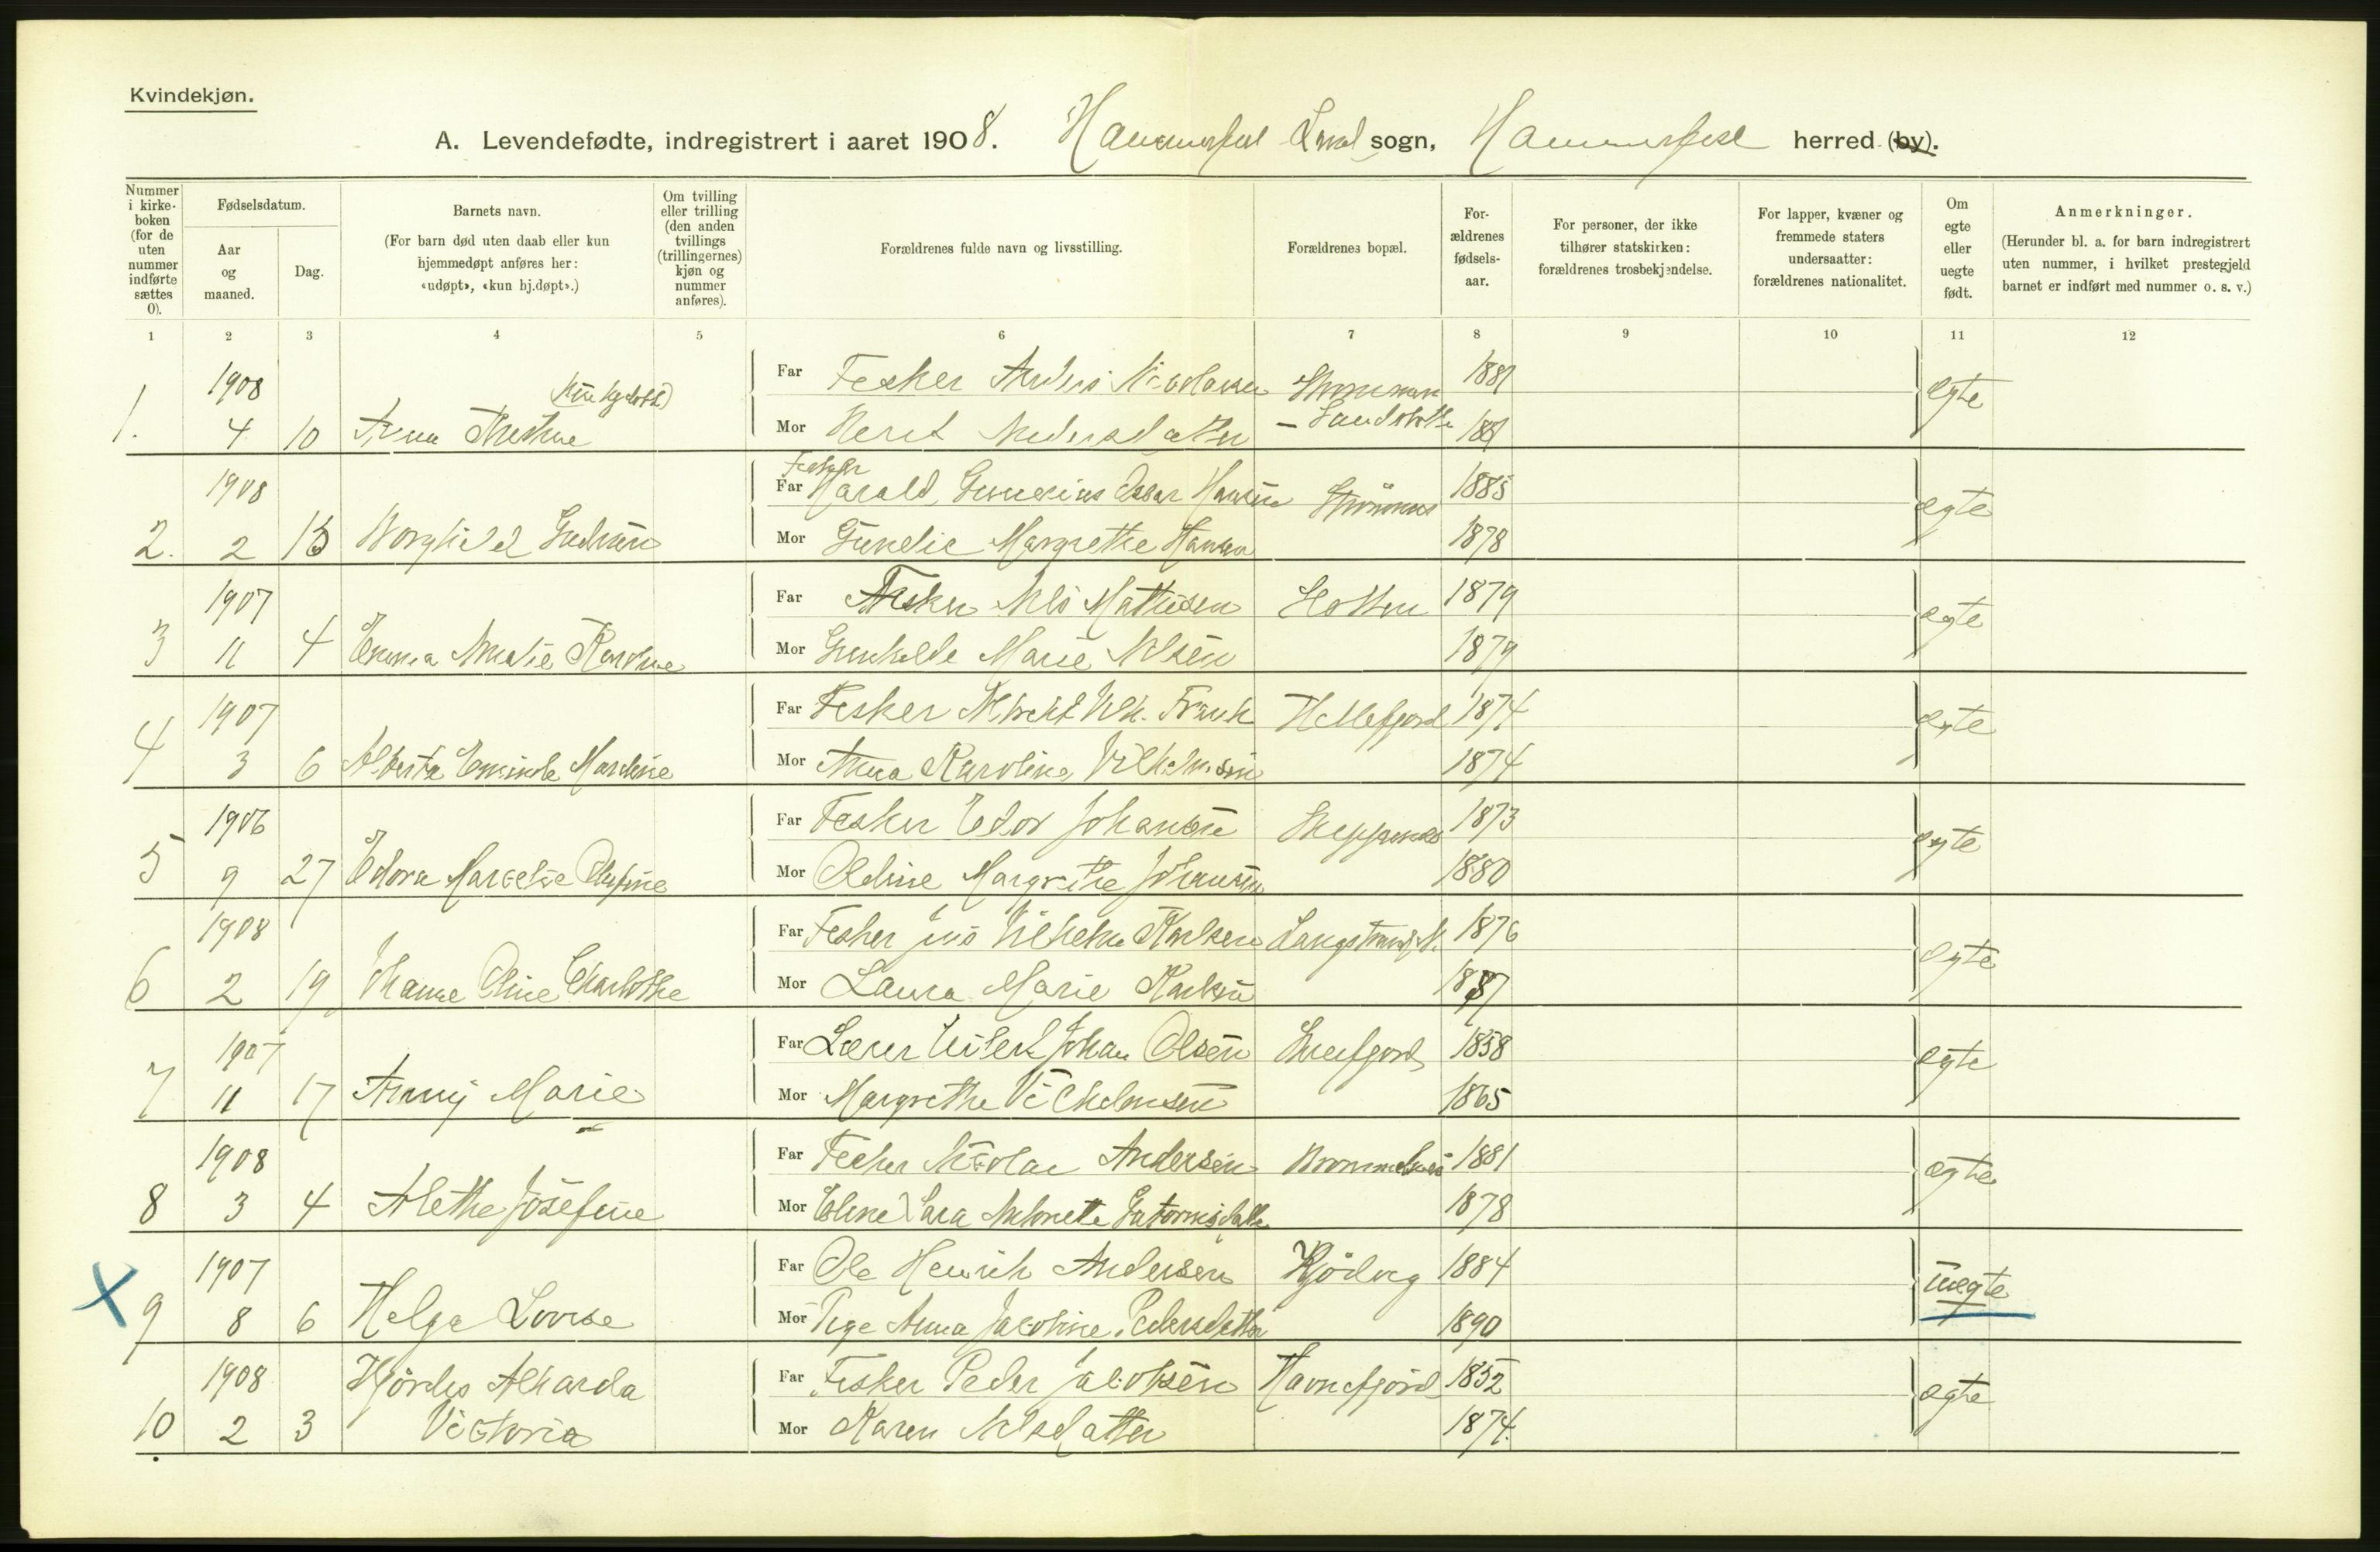 Kvindekjøn.
A. Levendefødte, indregistrert i aaret 1908. Hammerfest Land sogn, Hammerfest herred (by).
Nummer i kirkeboken (for de uten nummer indførte sættes 0).
Fødselsdatum.
Aar og maaned.
Dag.
Barnets navn.
(For barn død uten daab eller kun hjemmedøpt anføres her: «udøpt», «kun hj.døpt».)
Om tvilling eller trilling (den anden tvillings (trillingernes) kjøn og nummer anføres).
Forældrenes fulde navn og livsstilling.
Forældrenes bopæl.
Forældrenes fødselsaar.
For personer, der ikke tilhører statskirken: forældrenes trosbekjendelse.
For lapper, kvæner og fremmede staters undersaatter: forældrenes nationalitet.
Om egte eller uegte født.
Anmerkninger.
(Herunder bl. a. for barn indregistrert uten nummer, i hvilket prestegjeld barnet er indført med nummer o. s. v.)
1 2 3 4 5 6 7 8 9 10 11 12
1908 Far Fisker Anders Nicolaisen 1881 egte
1. 4 10 Anna Mor Beret Andersdatter
1908 Fisker
Far Harald Oskar Hansen 1885 egte
2. 2 13 Borghild Gudrun Mor Margrethe Hansen 1878
1907 Far Fisker Nils Mathisen 1879 egte
3 11 4 Emma Amalie Mor Gunhilde Marie Nilsen 1879
1907 Far Fisker Albrikt Vilh. Frank Hellefjord 1874 egte
4 3 6 Mor Anna Karoline Vilhelmsen 1874
1906 Far Fisker Edor Johansen 1873 egte
5 9 27 Edora Mor Oldine Margrethe Johansen 1880
1908 Far Fisker Jens Vilhelm Karlsen Langstrand 1876 egte
6 2 19 Oline Charlotte Mor Laura Marie Karlsen
1907 Far Lærer Johan Olsen Snefjord 1858 egte
7 11 17 Anny Marie Mor Margrethe Vilhelmsen 1865
1908 Far Fisker Nicolai Andersen 1881 egte
8 3 4 Alethe Josefine Mor Sara 1878
1907 Far Ole Henrik Andersen 1884 uegte
9 8 6 Helga Lovise Mor Pige Anna Jacobine Pedersdatter 1890
1908 Hjördis Alvarda Far Fisker Peder Jakobsen 1852 egte
10 2 3 Victoria Mor Karen Nilsdatter 1874.